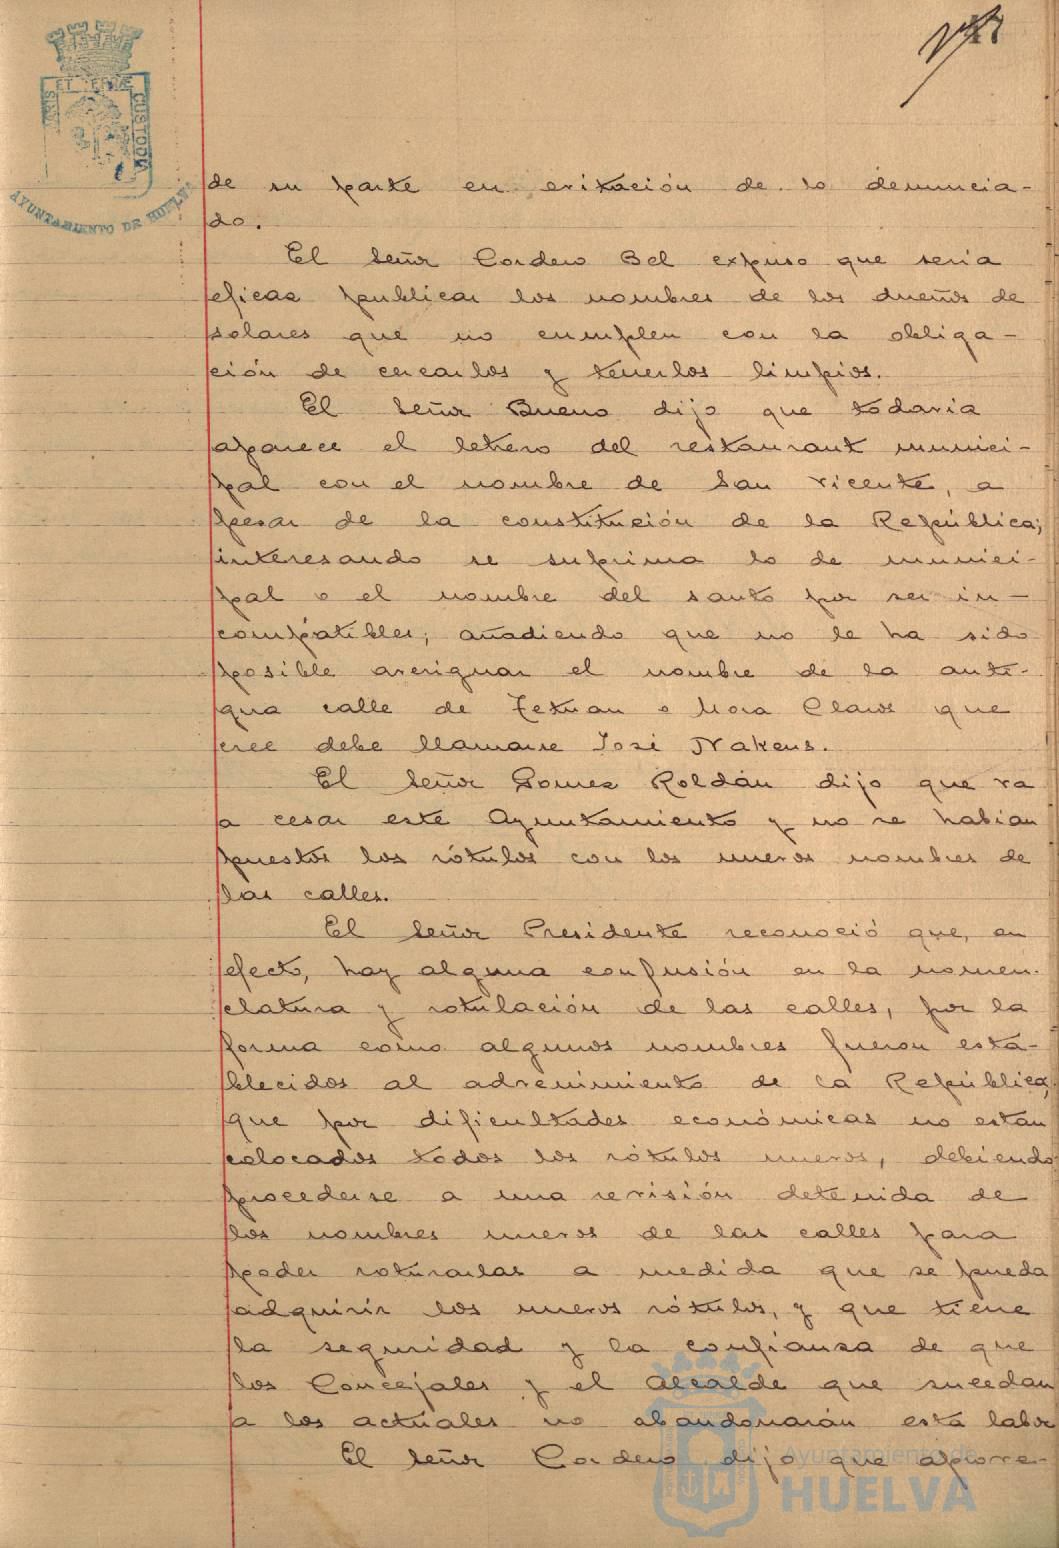 PORTUS MARIS ET TERRAE CUSTODIA
AYUNTAMIENTO DE HUELVA
de su parte en evitación de lo denuncia-
do.
El Señor Cordero Bel expuso que sería
eficaz publicar los nombres de los dueños de
solares que no cumplen con la obliga-
ción de cercarlos y tenerlos limpios.
El Señor Bueno dijo que todavía
aparece el letrero del restaurant munici-
pal con el nombre de San Vicente, a
pesar de la constitución de la República;
interesando se suprima lo de munici-
pal o el nombre del santo por ser in-
compatibles; añadiendo que no le ha sido
posible averiguar el nombre de la anti-
gua calle de Tetuan o Mora Claros que
cree debe llamarse José Nakens.
El Señor Gomez Roldán dijo que va
a cesar este Ayuntamiento y no se habian
puestos los rótulos con los nuevos nombres de
las calles.
El Señor Presidente reconoció que, en
efecto, hay alguna confusión en la nomen-
clatura y rotulación de las calles, por la
forma como algunos nombres fueron esta-
blecidos al advenimiento de la República,
que por dificultades económicas no estan
colocados todos los rótulos nuevos, debiendo
procederse a una revisión detenida de
los nombres nuevos de las calles para
poder roturarlas a medida que se pueda
adquirir los nuevos rótulos, y que tiene
la seguridad y la confianza de que
los Concejales y el Alcalde que sucedan
a los actuales no abandonarán esta labor
El Señor Cordero dijo que aprove-
Ayuntamiento de
HUELVA